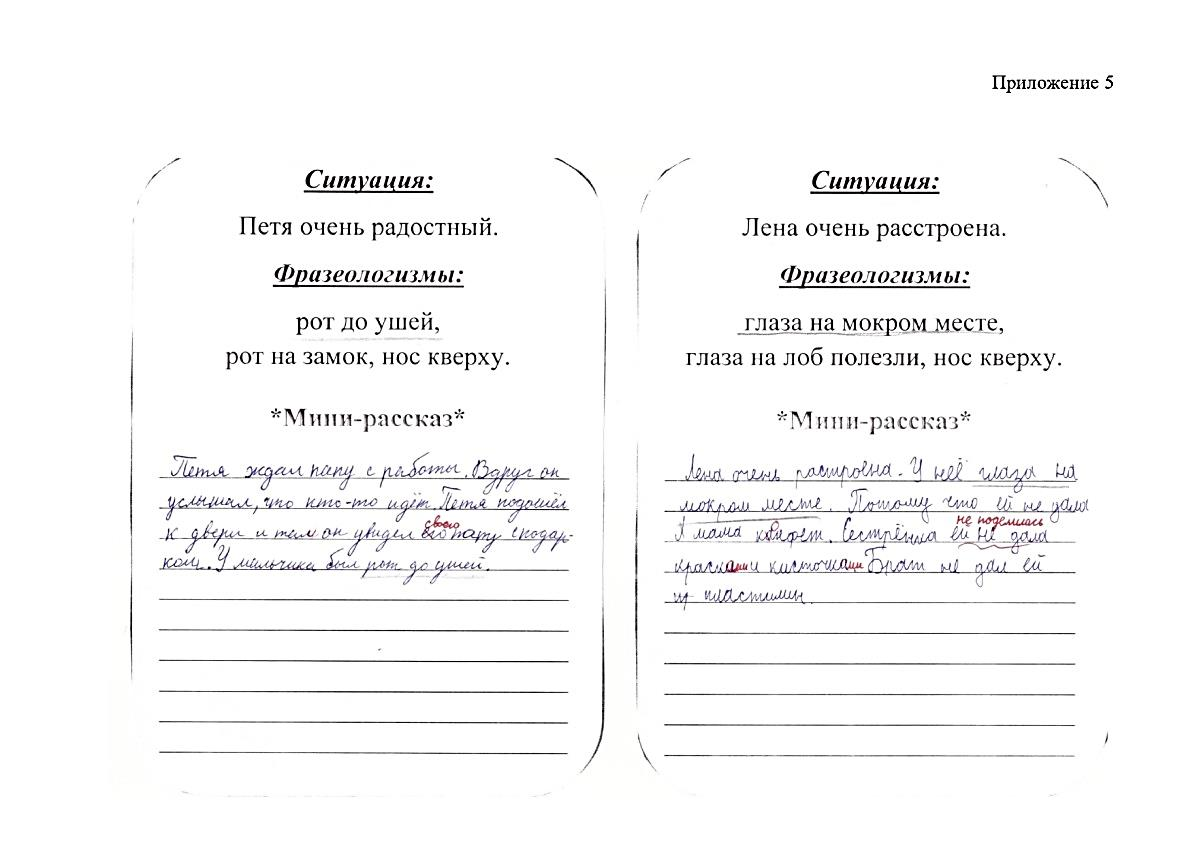 Приложение 5
Ситуация:
Петя очень радостный.
Фразеологизмы:
рот до ушей,
рот на замок, нос кверху.
*Мини-рассказ*
Петя ждал папу с работы. Вдруг он
услышал, что кто-то идёт. Петя подошёл
своего
к двери и там он увидел его папу с подар-
ком. У мальчика был рот до ушей.
Ситуация:
Лена очень расстроена.
Фразеологизмы:
глаза на мокром месте,
глаза на лоб полезли, нос кверху.
*Мини-рассказ*
Лена очень растроена. У неё глаза на
мокром месте. Потому что ей не дала
не поделилась
мама конфет. Сестрёнка ей не дала
красками кисточками Брат не дал ей
пластилин.